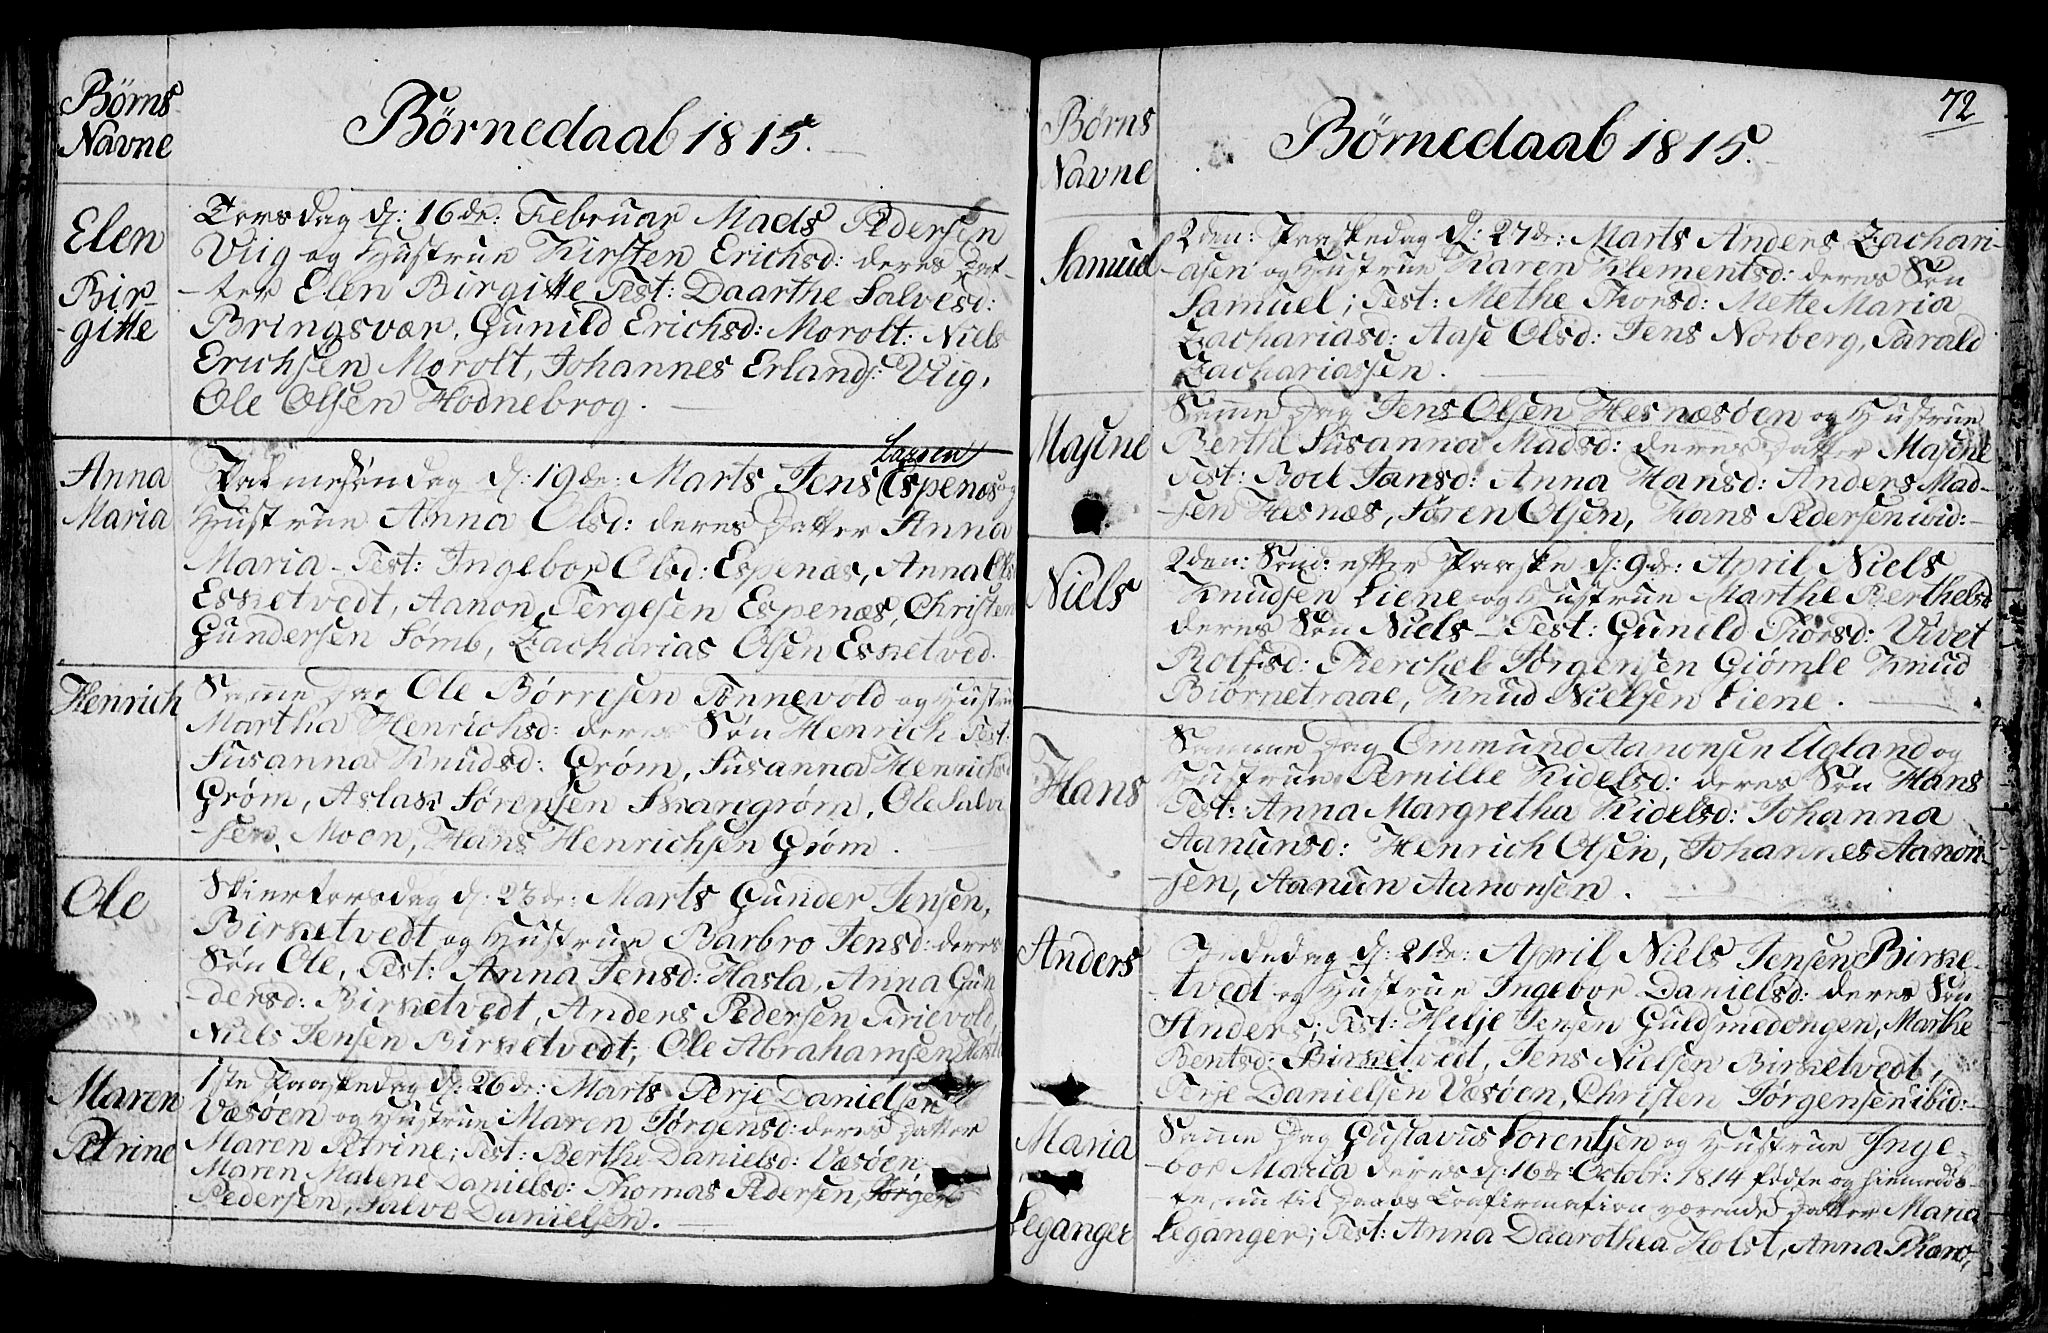 Børns
Navne
Børnedaab 1815.
Elen
Bir-
-gitte
Torsdag d: 16de: Februar Mads Pedersen
Viig og Hustrue Kirsten Erichsd: deres Dat-
-ter Elen Birgitte Test: Daarthe Salvesd:
Bringsvær, Gunild Erichsd: Morolt: Niels
Erichsen Morolt, Johannes Erlands: Viig,
Ole Olsen Hodnebrog.
Anna
Maria
Palmesøndag d: 19de: Marts Jens Larsen Espenes og
Hustrue Anna Olsd: deres Datter Anna
Maria - Test: Ingebor Olsd: Espenæs, Anna Ols
Esketvedt, Aanon Tergesen Espenæs, Christen
Gundersen Sømb, Zacharias Olsen Esketved.
Henrich
Samme Dag Ole Børrisen Tønnevold og Hustrue
Martha Henrichsd: deres Søn Henrich Test:
Susanna Knudsd: Grøm, Susanna Henrichsd
Grøm, Aslak Sørensen Skarigrøm, Ole Salve
-sen, Moen, Hans Henrichsen Grøm.
Ole
Skiertorsdag d: 23de: Marts Gunder Jensen,
Birketvedt og Hustrue Barbro Jensd: deres
Søn Ole, Test: Anna Jensd: Hasla, Anna Gun
-dersd: Birketvedt, Anders Pedersen Trievold,
Niels Jensen Birketvedt, Ole Abrahamsen Hasla
Maren
Petrine
1ste Paaskedag d: 26de: Marts Terje Danielsen
Væsøen og Hustrue Maren Jørgensd: deres Datter
Maren Petrine; Test: Berthe Danielsd: Væsøen
Maren Malene Danielsd: Thomas Pedersen, Jørgen
Pedersen, Salve Danielsen.
72
Børns
Navne
Børnedaab 1815.
Samuel
2den: Paaskedag d: 27de: Marts Anders Zachari-
-asen og Hustrue Karen Klementsd: deres Søn
Samuel; Test: Methe Thorsd: Mette Maria
Zachariasd: Aase Olsd: Jens Norberg, Tarald
Zachariassen.
Majene
Samme Dag Jens Olsen Hesnæsøen og Hustrue
Berthe Susanna Madsd: deres Datter Majene
Test: Boel Jansd: Anna Hansd: Anders Mad-
-sen Hesnæs, Søren Olsen, Hans Pedersen ibid:
Niels
2den: Sønd: efter Paaske d: 9de: April Niels
Knudsen Liene og Hustrue Marthe Berthelsd
deres Søn Niels - Test: Gunild Torsd: Vivet
Rolfsd: Kerchel Jørgensen Giømle Knud
Biørnetraae, Knud Nielsen Liene.
Hans
Samme Dag Ommund Aanonsen Ugland og
Hustrue Pernille Kidelsd: deres Søn Hans
Test: Anna Margretha Kidelsd: Johanna
Aanunsd: Henrich Olsen, Johannes Aanon-
-sen, Aanun Aanonsen.
Anders
Bededag d: 21de: April Niels Jensen Birke-
-tvedt og Hustrue Ingebor Danielsd: deres Søn
Anders; Test: Helje Jensen Guldsmedengen, Marthe
Bentsd: Birketvedt, Jens Nielsen Birketvedt,
Terje Danielsen Væsøen, Christen Jørgensen ibid:
Maria
Leganger
Samme Dag Gustavus Lorentsen og Hustrue Inge-
-bor Maria deres d: 16de: Octobr: 1814 fødte og hiemmedøb-
-te, nu til Daabs Confirmation værende Datter Maria
Leganger; Test: Anna Daarothea Holst, Anna